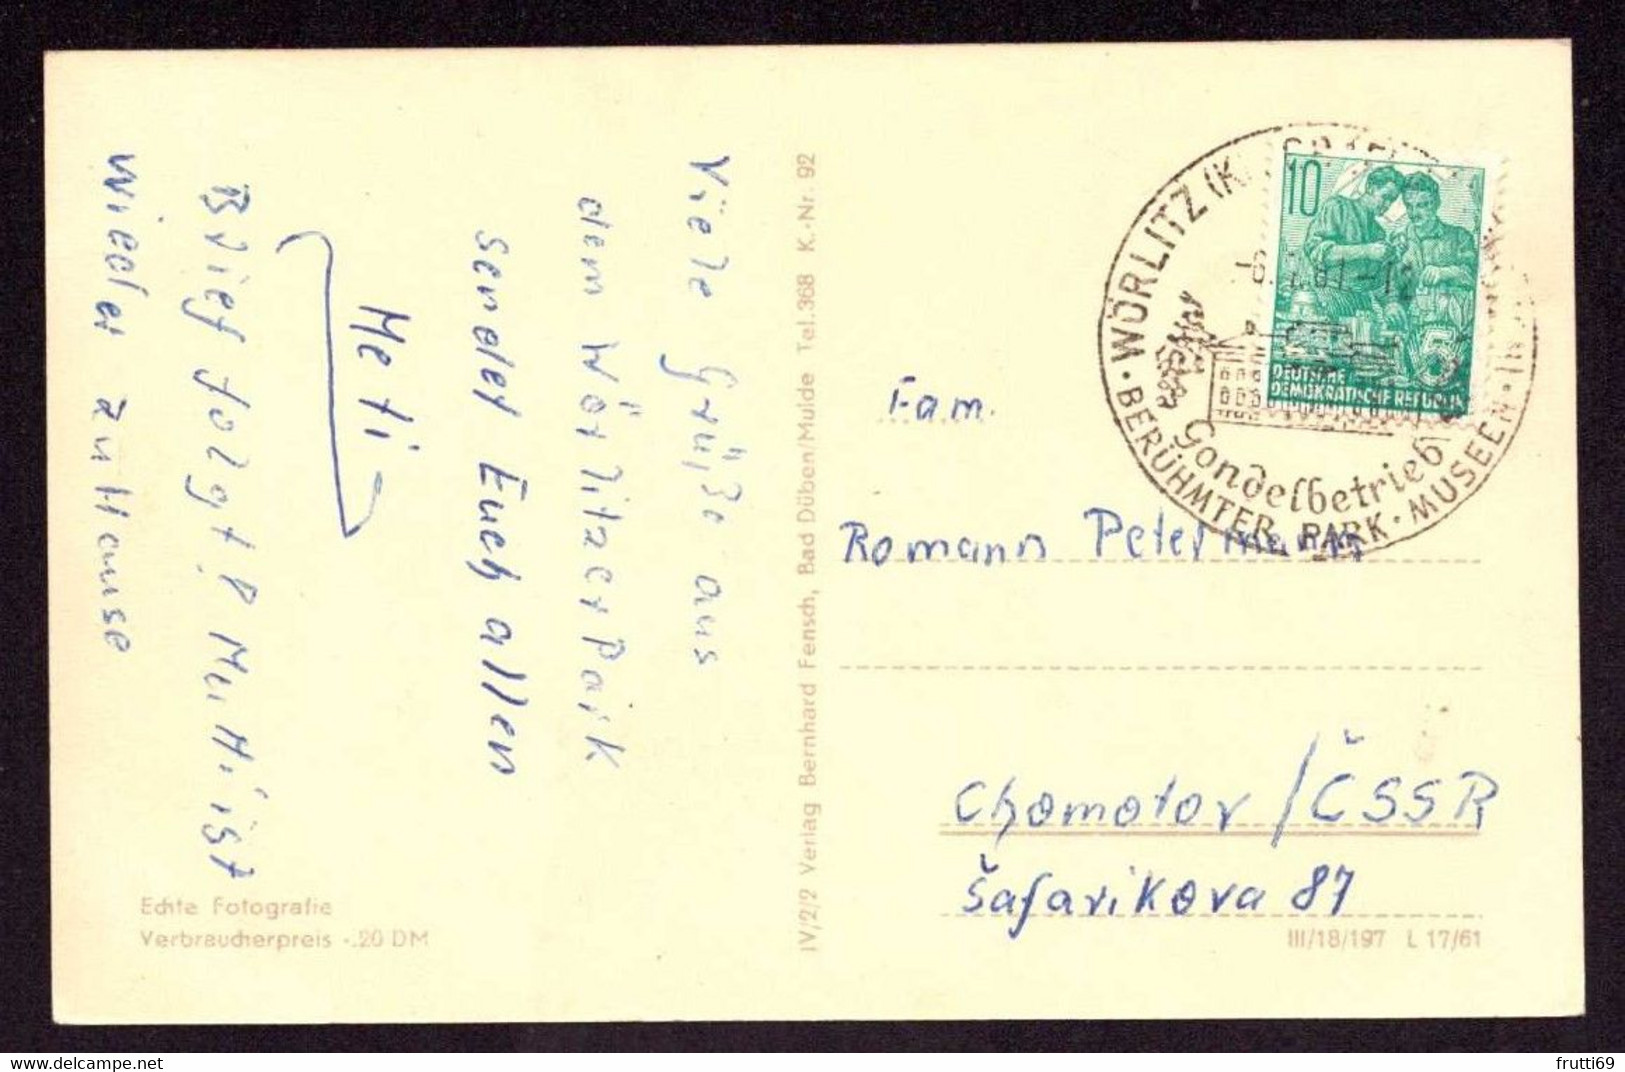 Viele Grüße aus
dem Wörlitzer Park
sendet Euch allen
Heti
Brief folgt! Mutti ist
wieder zu Hause
Echte Fotografie
Verbraucherpreis -.20 DM
IV/2/2 Verlag Bernhard Fensch, Bad Düben/Mulde Tel. 368 K.-Nr. 92
WÖRLITZ
10
DEUTSCHE
DEMOKRATISCHE REPUBLIK
5
Gondelbetrieb
BERÜHMTER PARK · MUSEEN
Fam.
Romann Petermann
Chomotov / ČSSR
Šafarikova 87
III/18/197 L 17/61
frutti69